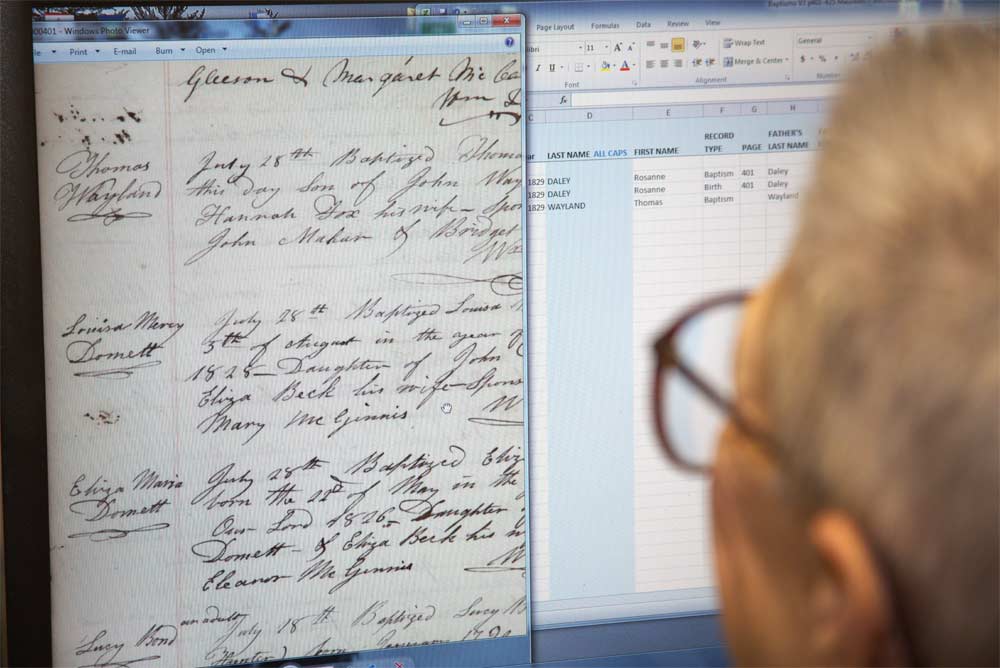 00401 - Windows Photo Viewer
Print E-mail Burn Open
Gleeson & Margaret Mc
Thomas
Wayland
July 28th Baptized Thoma
this day Son of John Way
Hannah Fox his wife - Spon
John Mahar & Bridget
Louisa Mercy
Domett
July 28th Baptized Louisa
5th of August in the year of
1828 - Daughter of John
Eliza Beck his wife - Spons
Mary McGinnis
Eliza Maria
Domett
July 28th Baptized Eliz
born the 22d of May in the
Our Lord 1826 - Daughter
Domett - & Eliza Beck his w
Eleanor McGinnis
an adult
Lucy Bond
July 18th Baptized Lucy
born
Page Layout Formulas Data Review View
11 A A Wrap Text General
I U A Merge & Center $ %
Font Alignment Number
fx
C D E F G H
LAST NAME ALL CAPS FIRST NAME RECORD TYPE PAGE FATHER'S LAST NAME
1829 DALEY Rosanne Baptism 401 Daley
1829 DALEY Rosanne Birth 401 Daley
1829 WAYLAND Thomas Baptism Wayland